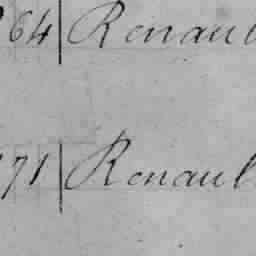 64 Renaul
171 Renaul